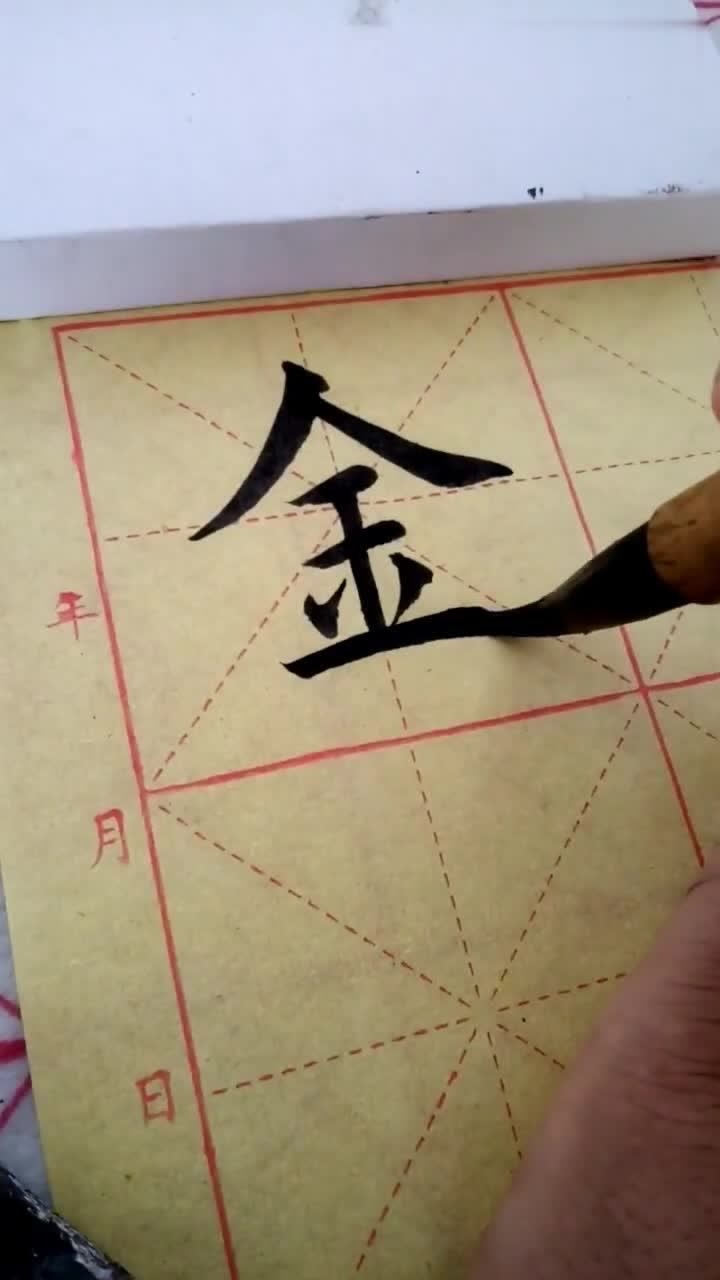 金
年
月
日